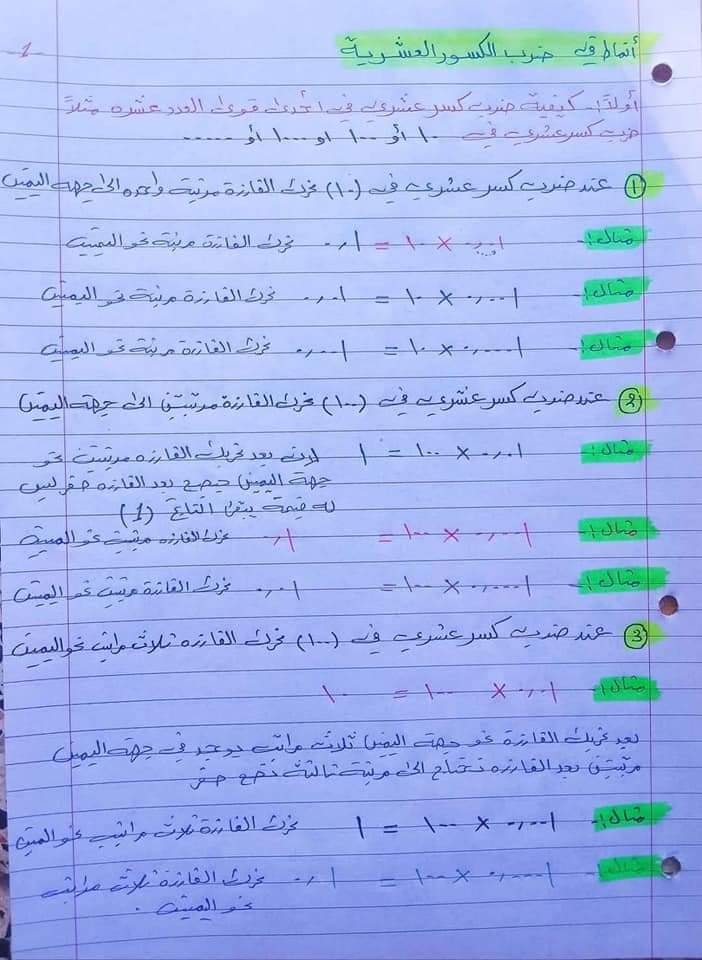 1
أنماط في ضرب الكسور العشرية
أولاً :- كيفية ضرب كسر عشري في أحدى قوى العدد عشره مثلاً
ضرب كسر عشري في ١٠ أو ١٠٠ او ١٠٠٠ أو ......
① عند ضرب كسر عشري في (١٠) نحرك الفارزة مرتبة واحده الى جهة اليمين
مثال :- ٠,٠١ × ١٠ = ٠,١ نحرك الفارزة مرتبة نحو اليمين
مثال :- ٠,٠٠١ × ١٠ = ٠,٠١ نحرك الفارزة مرتبة نحو اليمين
مثال :- ٠,٠٠٠١ × ١٠ = ٠,٠٠١ نحرك الفارزة مرتبة نحو اليمين
② عند ضرب كسر عشري في (١٠٠) نحرك الفارزة مرتبتين الى جهة اليمين
مثال :- ٠,٠١ × ١٠٠ = ١ لانه بعد تحريك الفارزه مرتبتين نحو
جهة اليمين يصبح بعد الفارزه صفر ليس
له قيمة يبقى الناتج (1)
مثال :- ٠,٠٠١ × ١٠٠ = ٠,١ نحرك الفارزة مرتبتين نحو اليمين
مثال :- ٠,٠٠٠١ × ١٠٠ = ٠,٠١ نحرك الفارزة مرتبتين نحو اليمين
③ عند ضرب كسر عشري في (١٠٠٠) نحرك الفارزه ثلاث مراتب نحو اليمين
مثال :- ٠,٠١ × ١٠٠٠ = ١٠
بعد تحريك الفارزة نحو جهة اليمين ثلاثه مراتب يوجد في جهة اليمين
مرتبتين بعد الفارزه نحتاج الى مرتبة ثالثة نضع صفر
مثال :- ٠,٠٠١ × ١٠٠٠ = ١ نحرك الفارزة ثلاث مراتب نحو اليمين
مثال :- ٠,٠٠٠١ × ١٠٠٠ = ٠,١ نحرك الفارزة ثلاث مراتب
نحو اليمين .